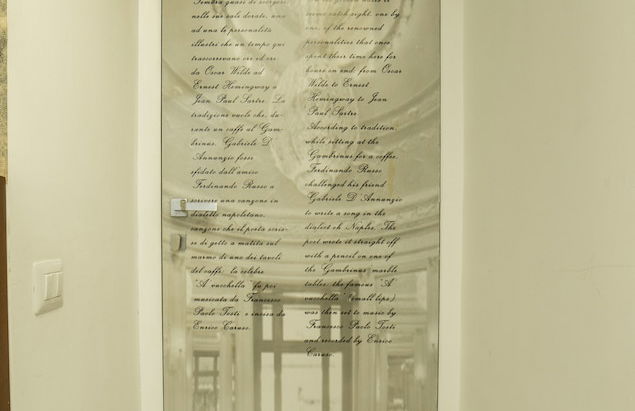 Sembra quasi di scorgere
nelle sue sale dorate, una
ad una le personalità
illustri che un tempo qui
trascorrevano ore ed ore
da Oscar Wilde ad
Ernest Hemingway a
Jean Paul Sartre. La
tradizione vuole che, du-
rante un caffè al Gam-
brinus, Gabriele D'
Annunzio fosse
sfidato dall'amico
Ferdinando Russo a
scrivere una canzone in
dialetto napoletano,
canzone che il poeta scris-
se di getto a matita sul
marmo di uno dei tavoli
del caffè: la celebre
"A vucchella" fu poi
musicata da Francesco
Paolo Tosti e incisa da
Enrico Caruso.
seems catch sight, one by
one, of the renowned
personalities that once
spent their time here for
hours on end: from Oscar
Wilde to Ernest
Hemingway to Jean
Paul Sartre.
According to tradition,
while sitting at the
Gambrinus for a coffee,
Ferdinando Russo
challenged his friend
Gabriele D'Annunzio
to write a song in the
dialect of Naples. The
poet wrote it straight off
with a pencil on one of
the Gambrinus marble
tables: the famous "A
vucchella" (small lips)
was then set to music by
Francesco Paolo Tosti
and recorded by Enrico
Caruso.